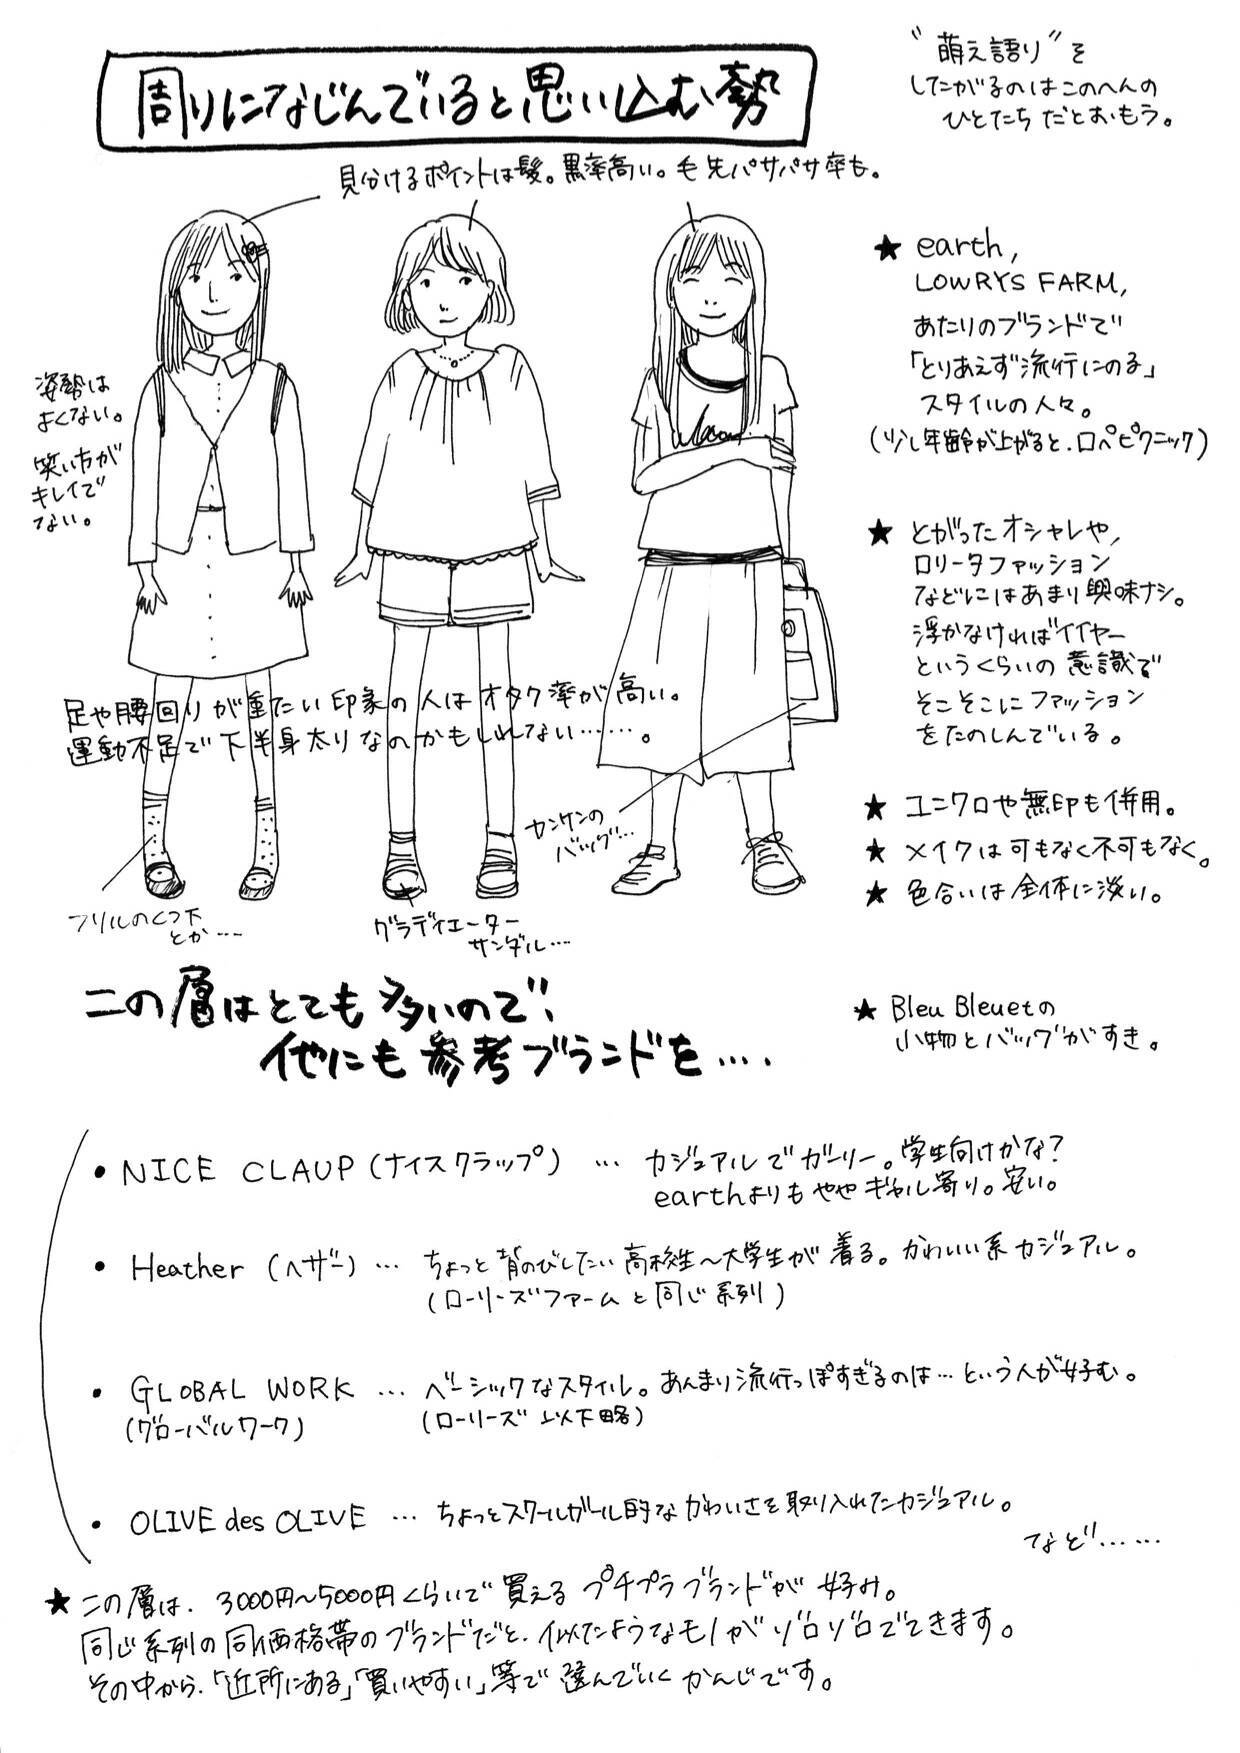 周りになじんでいると思い込む勢
"萌え語り"を
したがるのはこのへんの
ひとたちだとおもう。
見分けるポイントは髪。黒率高い。毛先パサパサ率も。
姿勢は
よくない。
笑い方が
キレイで
ない。
★ earth,
LOWRYS FARM,
あたりのブランドで
「とりあえず流行にのる」
スタイルの人々。
(少し年齢が上がると、ロペピクニック)
★ とがったオシャレや、
ロリータファッション
などにはあまり興味ナシ。
浮かなければイイヤー
というくらいの意識で
そこそこにファッション
をたのしんでいる。
足や腰回りが重たい印象の人はオタク率が高い。
運動不足で下半身太りなのかもしれない……。
カンケンの
バッグ…
★ ユニクロや無印も併用。
★ メイクは可もなく不可もなく。
★ 色合いは全体に淡い。
フリルのくつ下
とか…
グラディエーター
サンダル…
この層はとても多いので、
他にも参考ブランドを….
★ Bleu Bleuetの
小物とバッグがすき。
• NICE CLAUP (ナイスクラップ) … カジュアルでガーリー。学生向けかな?
earthよりもややギャル寄り。安い。
• Heather (ヘザー) … ちょっと背のびしたい高校生〜大学生が着る。かわいい系カジュアル。
(ローリーズファームと同じ系列)
• GLOBAL WORK … ベーシックなスタイル。あんまり流行っぽすぎるのは…という人が好む。
(グローバルワーク) (ローリーズ 以下略)
• OLIVE des OLIVE … ちょっとスクールガール的なかわいさを取り入れたカジュアル。
など……
★ この層は、3000円〜5000円くらいで買えるプチプラブランドが好み。
同じ系列の同価格帯のブランドだと、似たようなモノがゾロゾロでてきます。
その中から、「近所にある」「買いやすい」等で選んでいくかんじです。